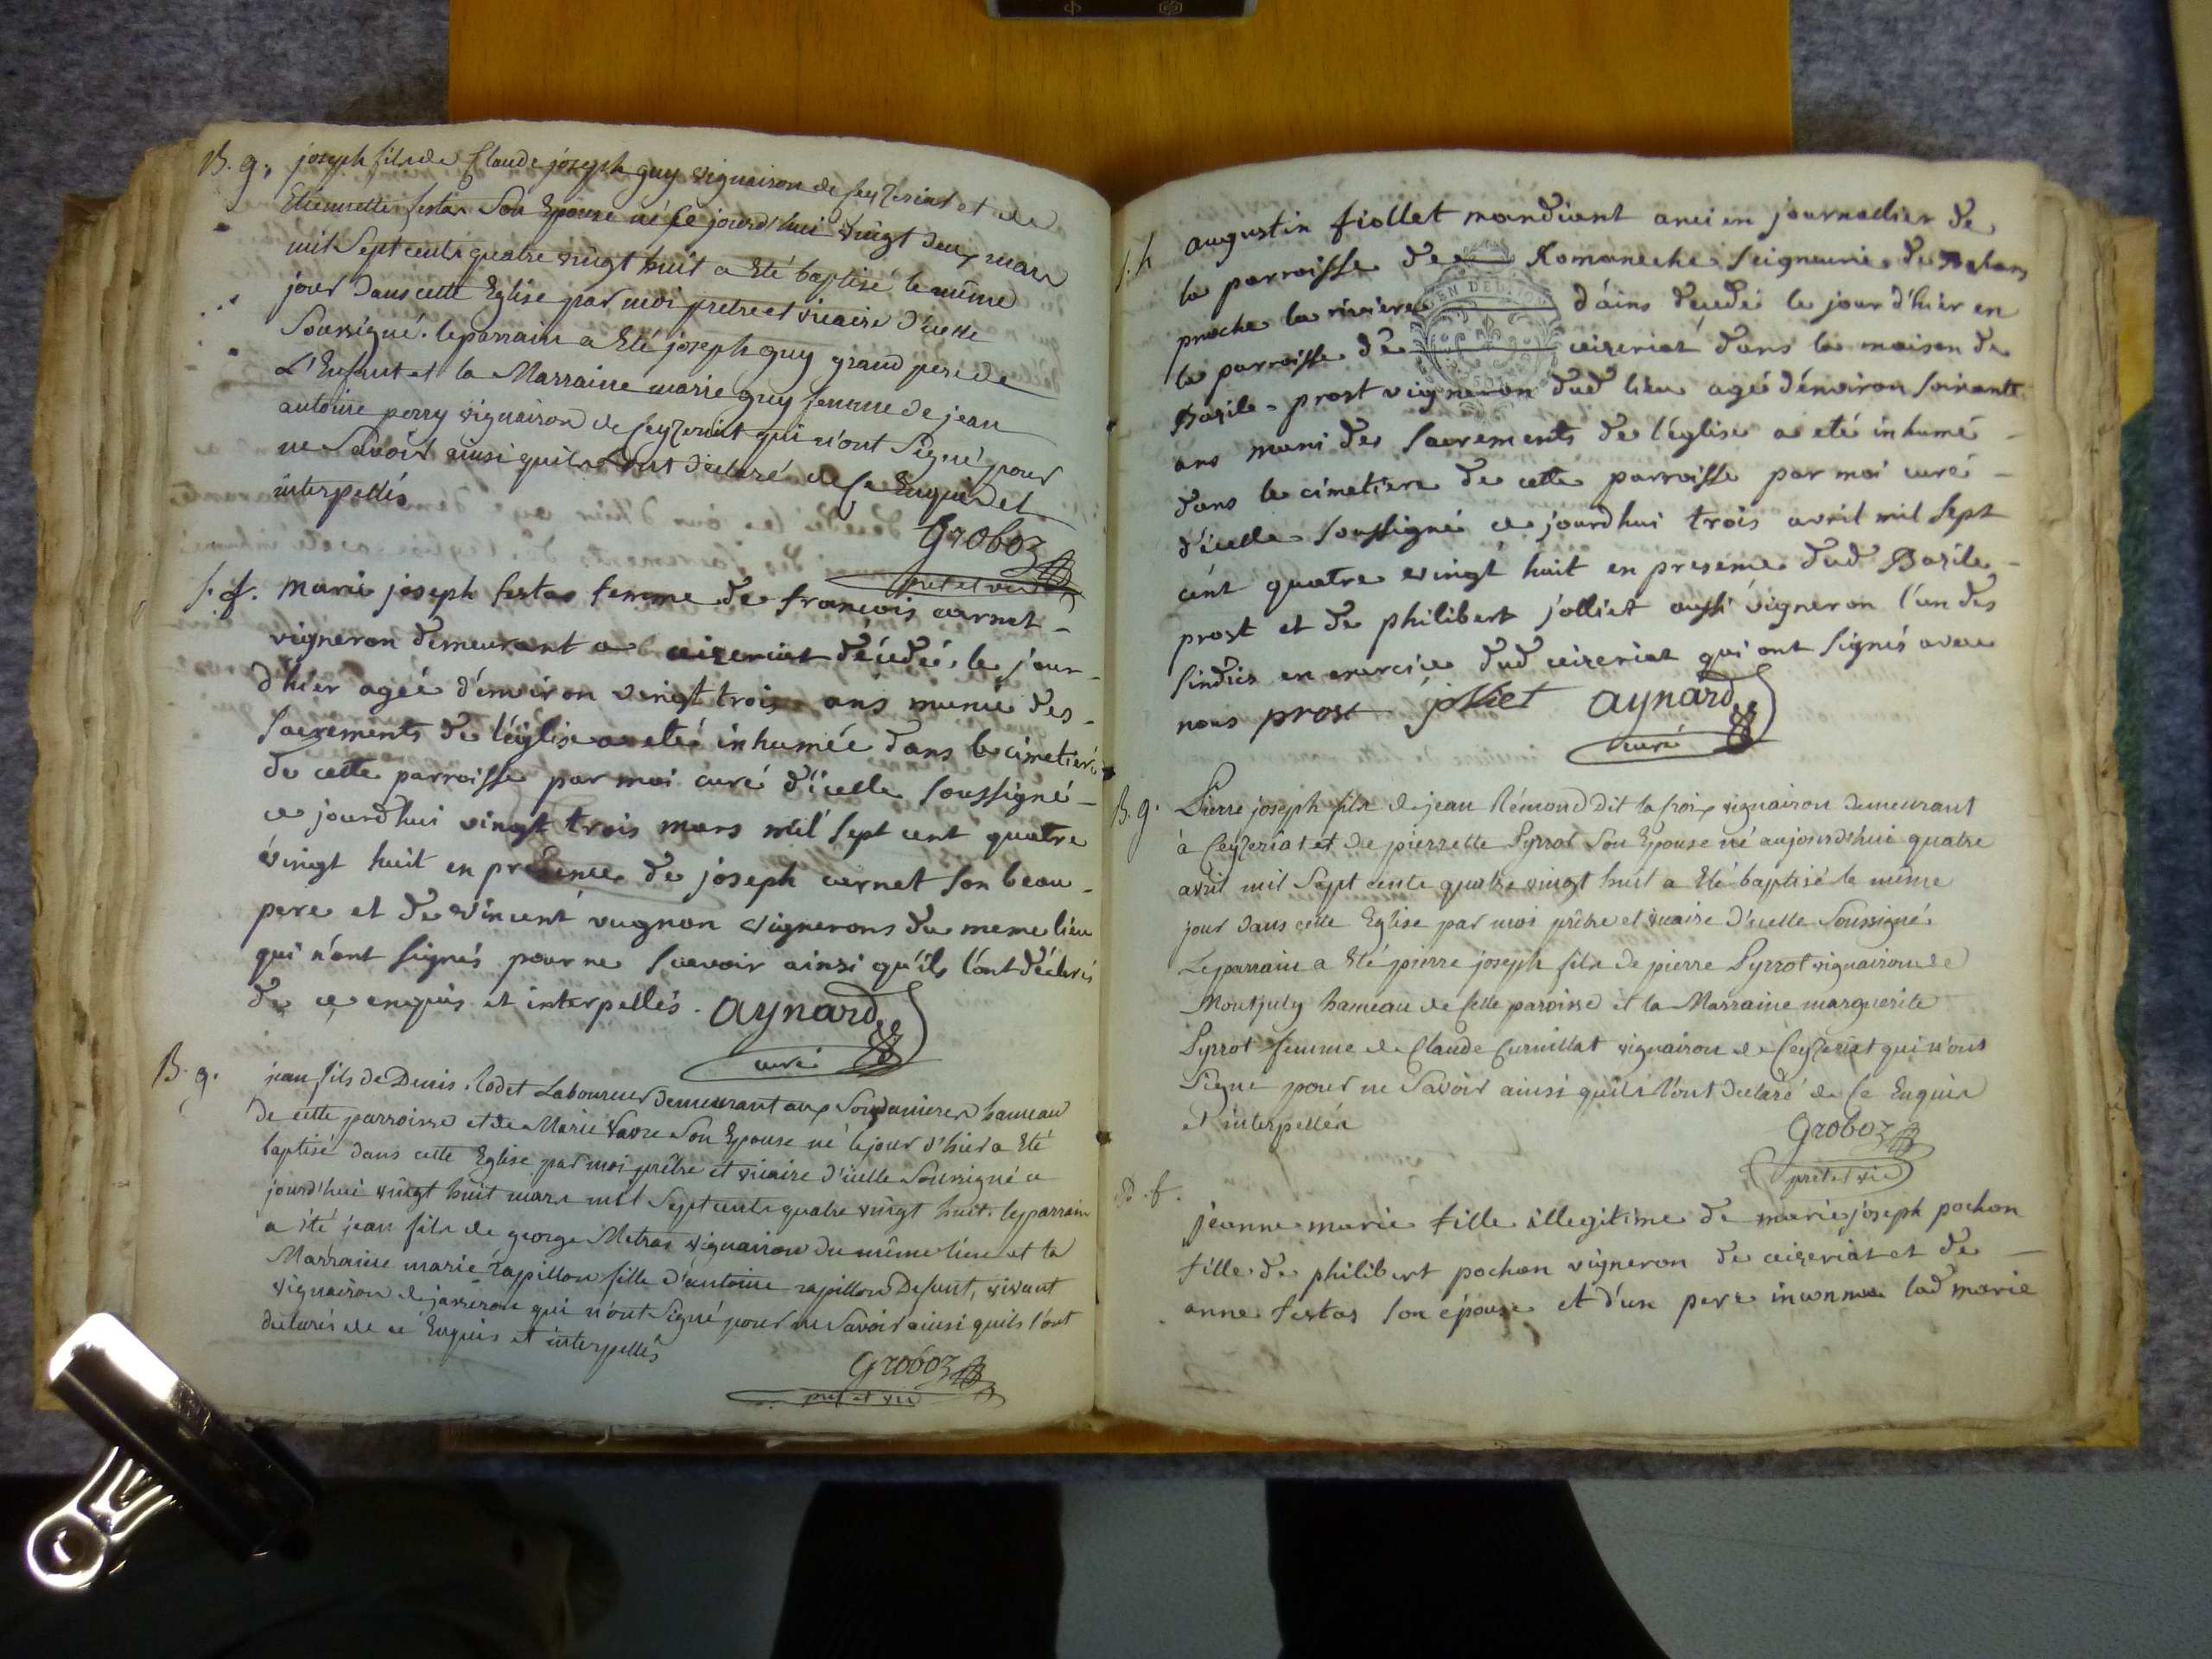 B. g. joseph fils de Claude joseph guy vignairon de Ceyzeriat et de
Etiennette festas Son Epouse né ce jourd'hui vingt deux mars
mil Sept cents quatre vingt huit a Eté baptisé le même
jour Dans cette Eglise par moi pretre et vicaire d'icelle
Soussigné. le parrain a Eté joseph guy grand pere de
L'Enfant et la Marraine marie guy femme de jean
antoine perry vignairon de Ceyzeriat qui n'ont Signé pour
ne Savoir ainsi quils l'ont déclaré de Ce Enquis et
interpellés
Groboz
pret et vic
f. marie joseph festas femme de francois carnet
vigneron demeurant a ceizeriat décédée le jour
d'hier agée d'environ vingt trois ans munie des
sacrements de l'église a eté inhumée dans le cimetiere
de cette parroisse par moi curé d'icelle soussigné
ce jourdhui vingt trois mars mil sept cent quatre
vingt huit en présence de joseph carnet son beau
pere et de vincent vugnon vignerons du meme lieu
qui n'ont signés pour ne scavoir ainsi qu'ils l'ont déclarés
de ce enquis et interpellés. aynard
curé
B. g. jean fils de Denis Rodet Laboureur demeurant aux Soudanieres hameau
de cette parroisse et de Marie Favre Son Epouse né le jour d'hier a Eté
baptisé dans cette Eglise par moi prêtre et vicaire d'icelle Soussigné ce
jourd'hui vingt huit mars mil Sept cents quatre vingt huit. le parrain
a été jean fils de george Metras vignairon du même lieu et la
Marraine marie rapillon fille d'antoine rapillon Defunt, vivant
vignairon de jasseron qui n'ont Signé pour ne Savoir ainsi quils l'ont
declarés de ce Enquis et interpellés
Groboz
pret et vic
s. h augustin fiollet mandiant ancien journallier de
la parroisse de Romaneche seigneurie de
proche la riviere d'ains décédé le jour d'hier en
la parroisse de ceizeriat dans la maison de
Basile prost vigneron dud lieu agé d'environ soixante
ans muni des sacrements de l'église a eté inhumé
dans le cimetiere de cette parroisse par moi curé
d'icelle soussigné ce jourdhui trois avril mil sept
cent quatre vingt huit en presence dud Basile
prost et de philibert jolliet aussi vigneron l'un des
sindics en exercice dud ceizeriat qui ont signés avec
nous prost jolliet aynard
curé
B. g. Pierre joseph fils de jean Rémond dit la froix vignairon demeurant
à Ceyzeriat et de pierrette Pyrrot Son Epouse né aujourd'hui quatre
avril mil Sept cents quatre vingt huit a Eté baptisé le même
jour dans cette Eglise par moi prêtre et vicaire d'icelle Soussigné
Le parrain a Eté pierre joseph fils de pierre Pyrrot vignairon de
Montjuly hameau de cette paroisse et la Marraine marguerite
Pyrrot femme de Claude Curnillat vignairon de Ceyzeriat qui n'ont
Signé pour ne Savoir ainsi quils l'ont declaré de Ce Enquis
et interpellés
Groboz
pret et vic
. f. jeanne marie fille illegitime de marie joseph pochon
fille de philibert pochon vigneron de ceizeriat et de
anne festas son épouse et d'un pere inconnue lad marie